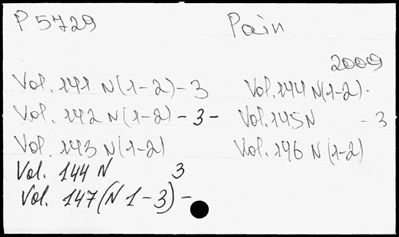 P 5729 Pain
2009
Vol. 141 N(1-2)-3 Vol. 144 N(1-2).
Vol. 142 N(1-2)-3- Vol. 145 N - 3
Vol. 143 N(1-2) Vol. 146 N(1-2)
Vol. 144 N 3
Vol. 147(N 1-3)-